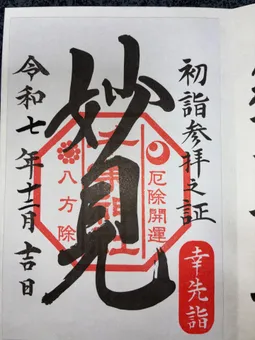 初詣参拝之証
厄除開運
妙見
八方除
令和七年十二月吉日
幸先詣